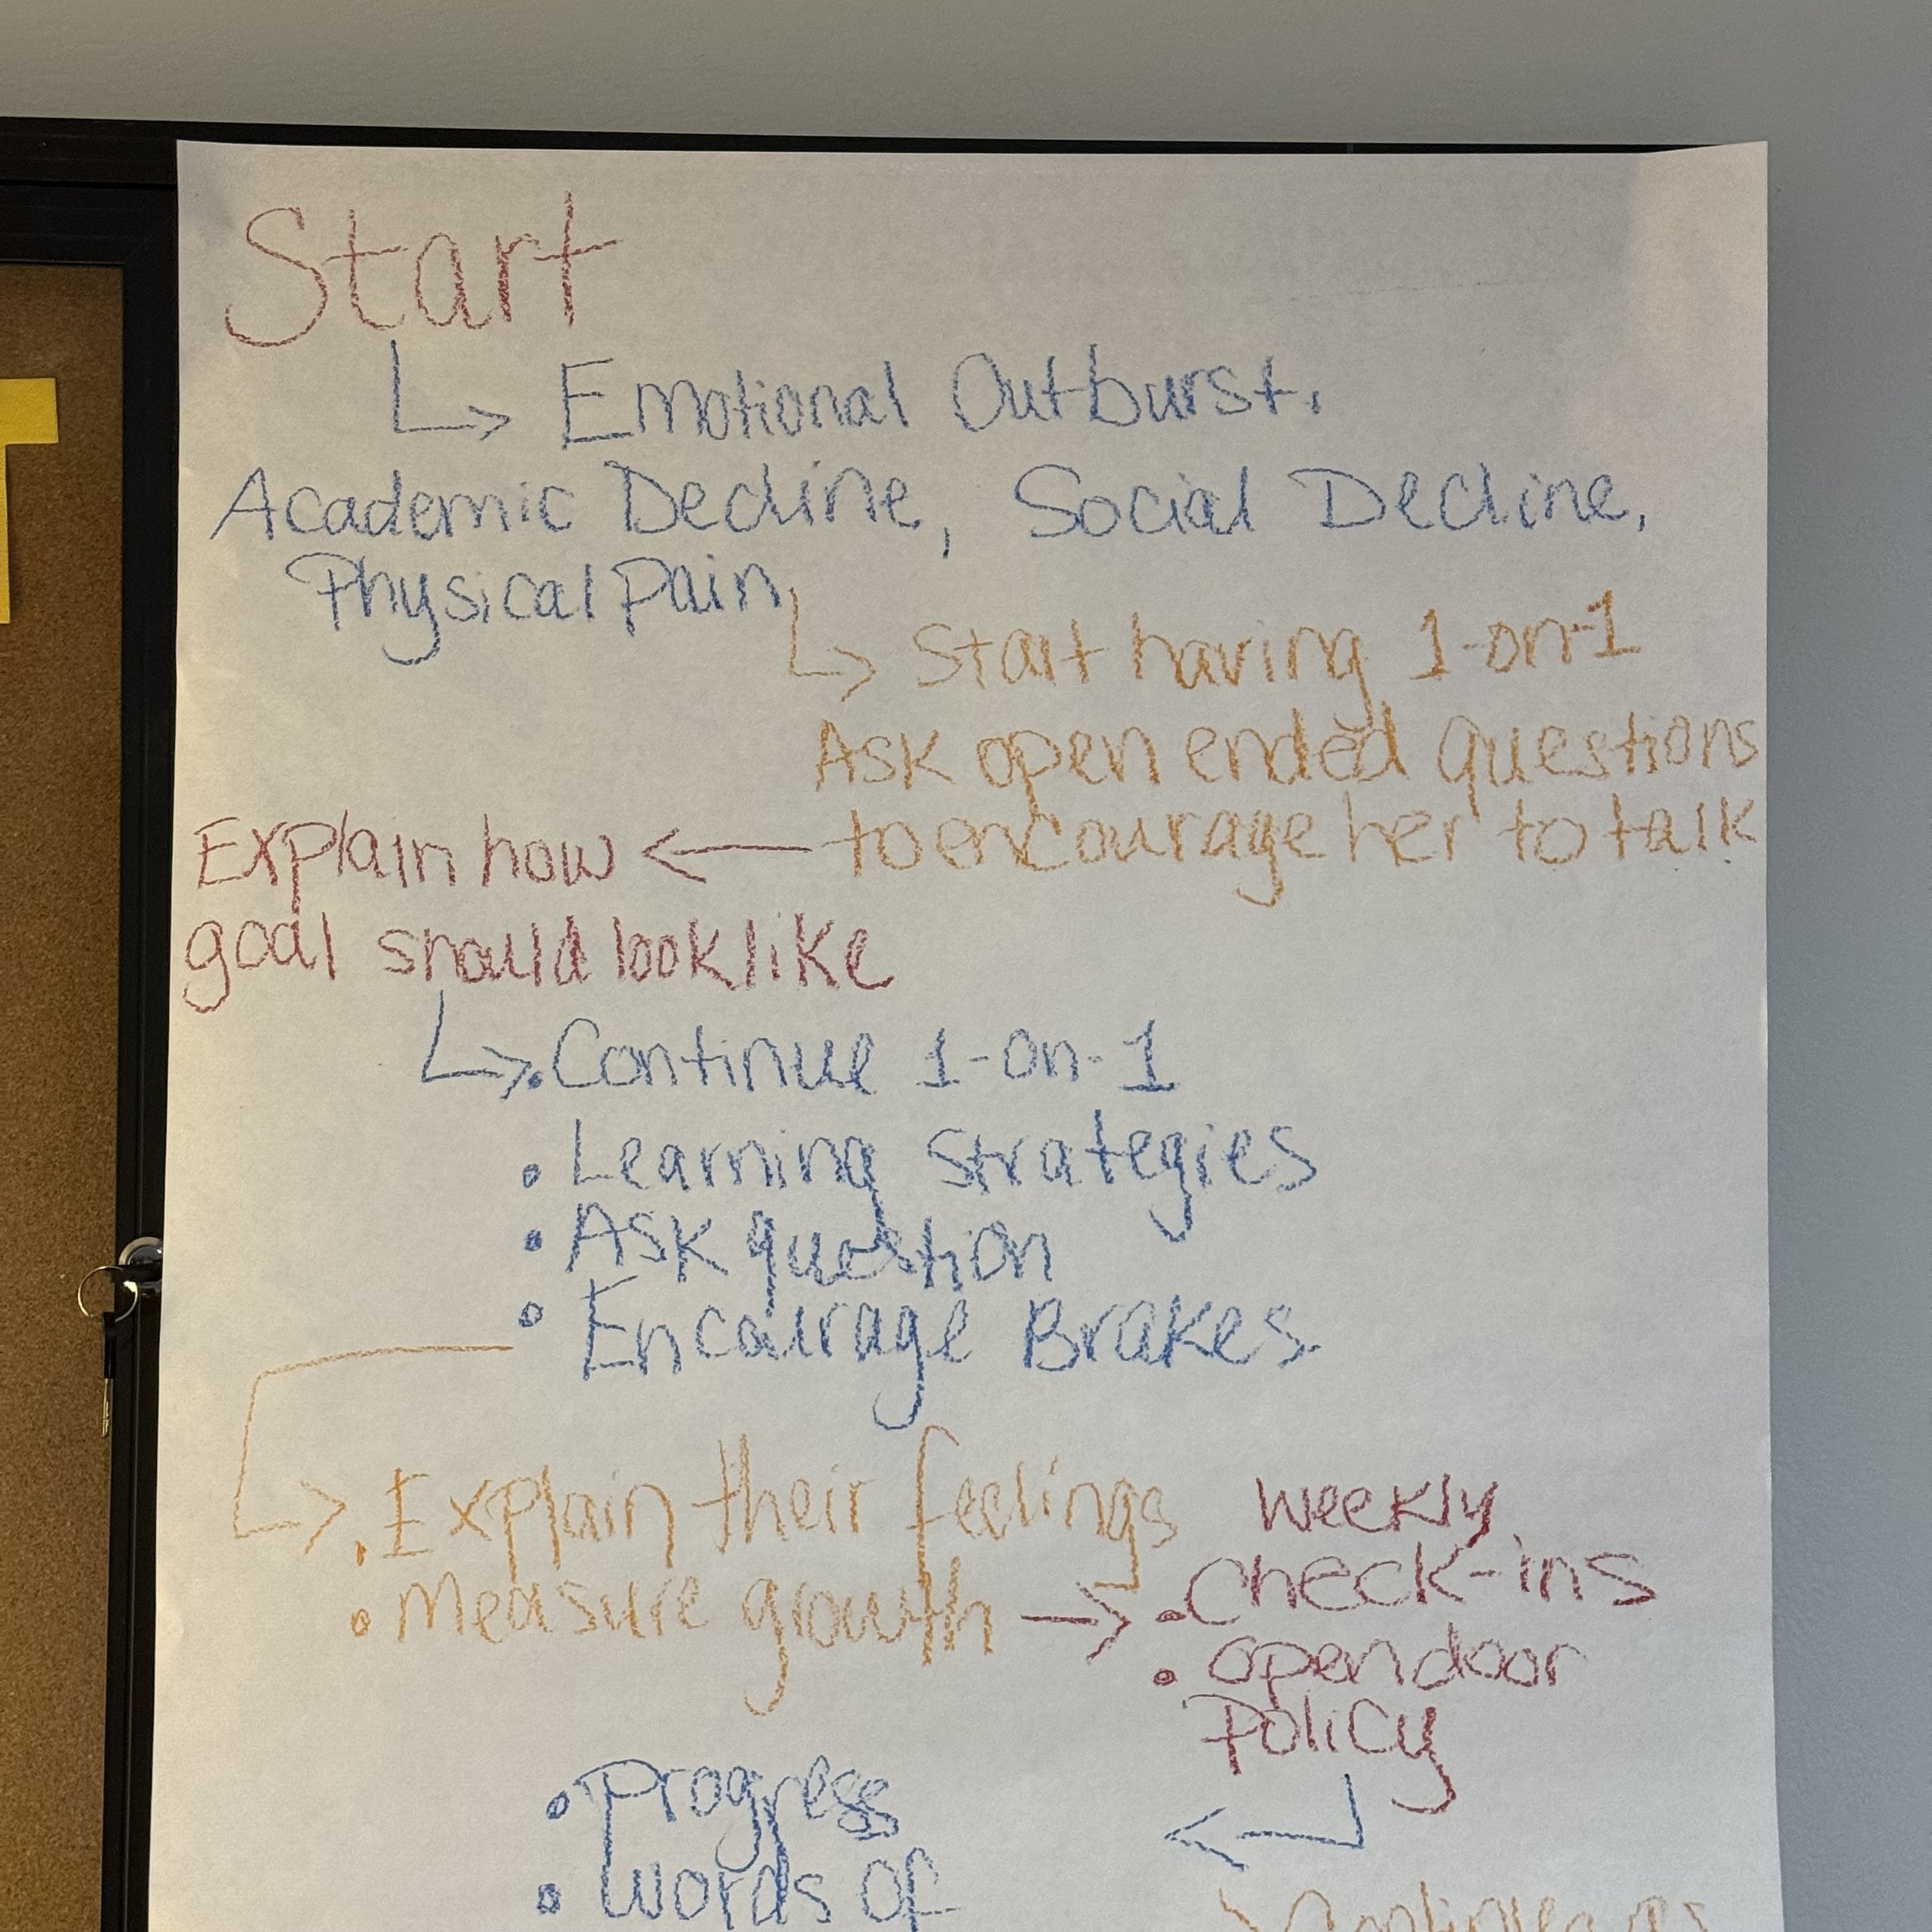 Start
Emotional Outburst,
Academic Decline, Social Decline,
Physical Pain
Start having 1-on-1
Ask open ended questions
to encourage her to talk
Explain how
goal should look like
• Continue 1-on-1
• Learning strategies
• Ask question
• Encourage Brakes
• Explain their feelings
• Measure growth
weekly
• Check-ins
• open door
Policy
• Progress
• words of